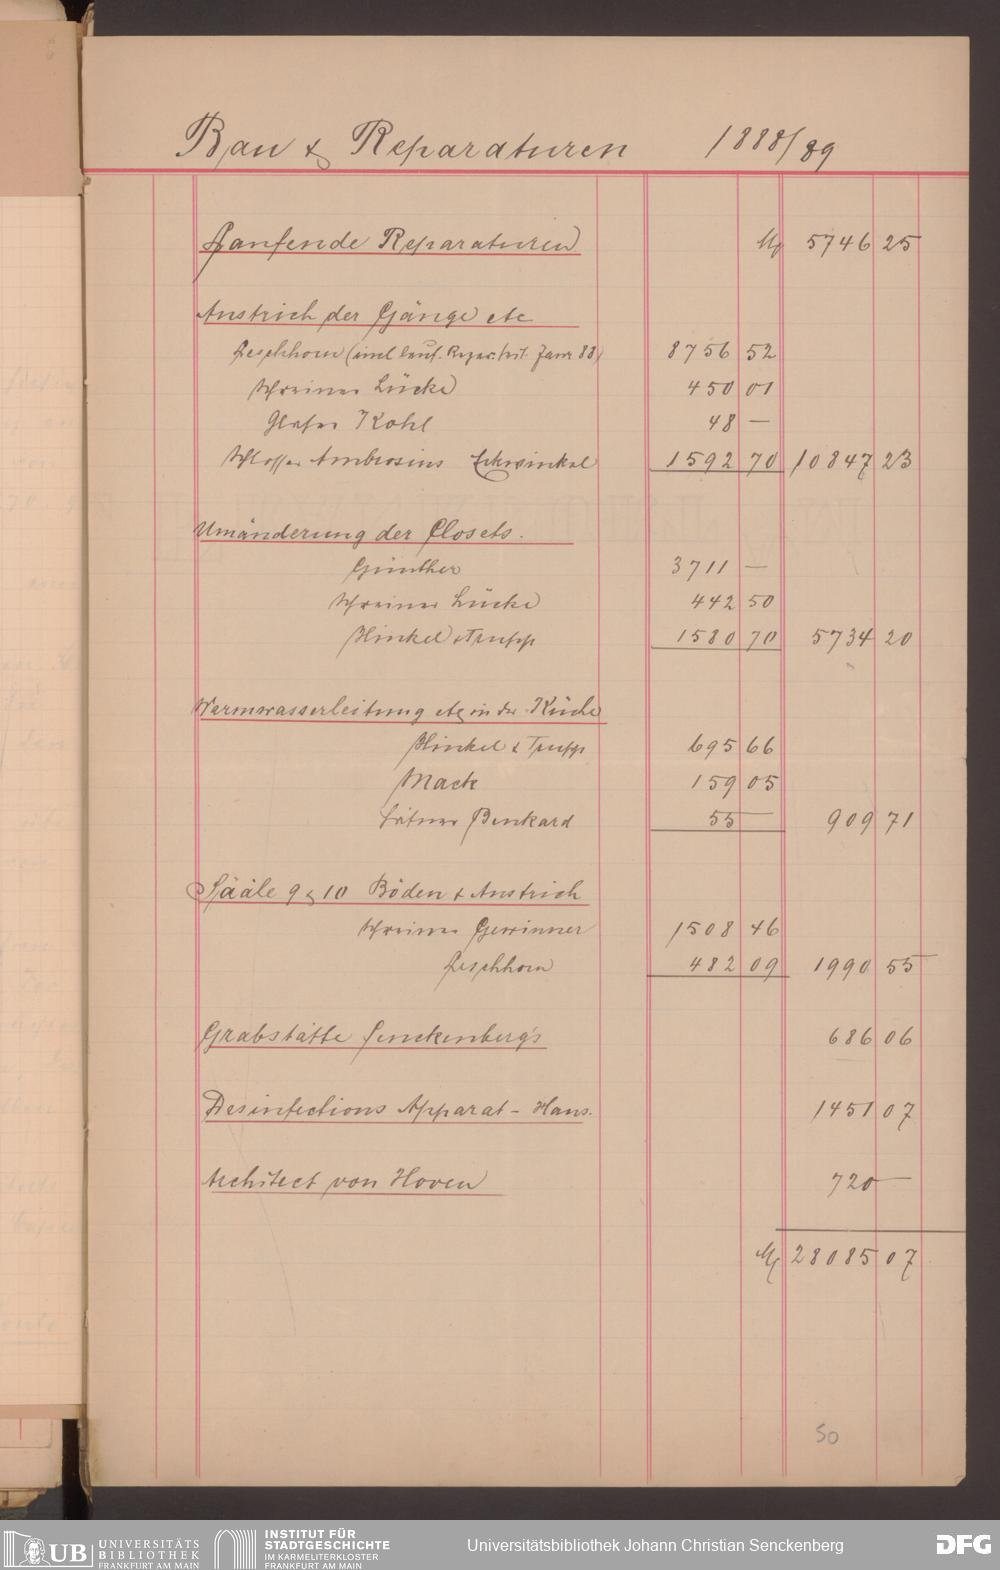 Bau & Reparaturen 1888/89
Laufende Reparaturen M 5746 25
Anstrich der Gänge etc
Leschhorn (incl lauf. Repar. seit Janr 88) 8756 52
Schreiner Lücke 450 01
Glaser Kohl 48 —
Schlosser Ambrosius 1592 70 10847 23
Umänderung der Closets.
Günther 3711 —
Schreiner Lücke 442 50
Hinkel & Trupp 1580 70 5734 20
Warmwasserleitung etc in der Küche
Hinkel & Trupp 695 66
Mack 159 05
Benkard 55 — 909 71
Sääle 9 & 10 Böden & Anstrich
Schreiner Gewinner 1508 46
Leschhorn 482 09 1990 55
Grabstätte Senckenberg's 686 06
Desinfections Apparat - Haus. 1451 07
Architect von Hoven 720 —
M 28085 07
50
UB UNIVERSITÄTS
BIBLIOTHEK
FRANKFURT AM MAIN
INSTITUT FÜR
STADTGESCHICHTE
IM KARMELITERKLOSTER
FRANKFURT AM MAIN
Universitätsbibliothek Johann Christian Senckenberg
DFG